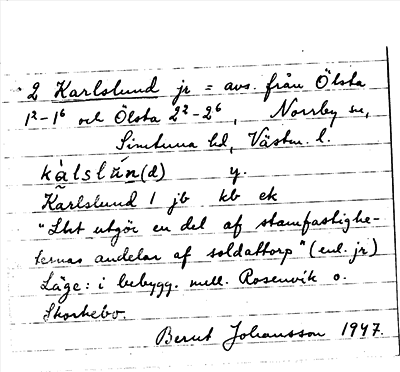 2 Karlslund jr = avs. från Ölsta
1²-1⁶ och Ölsta 2²-2⁶, Norrby sn,
Simtuna hd, Västm. l.
kàlslún(d) y.
Karlslund / jb kb ek
"Lht utgör en del af stamfastighe-
ternas andelar af soldattorp" (enl. jr)
Läge: i bebygg. mell. Rosenvik o.
Skorkebo.
Bernt Johansson 1947.